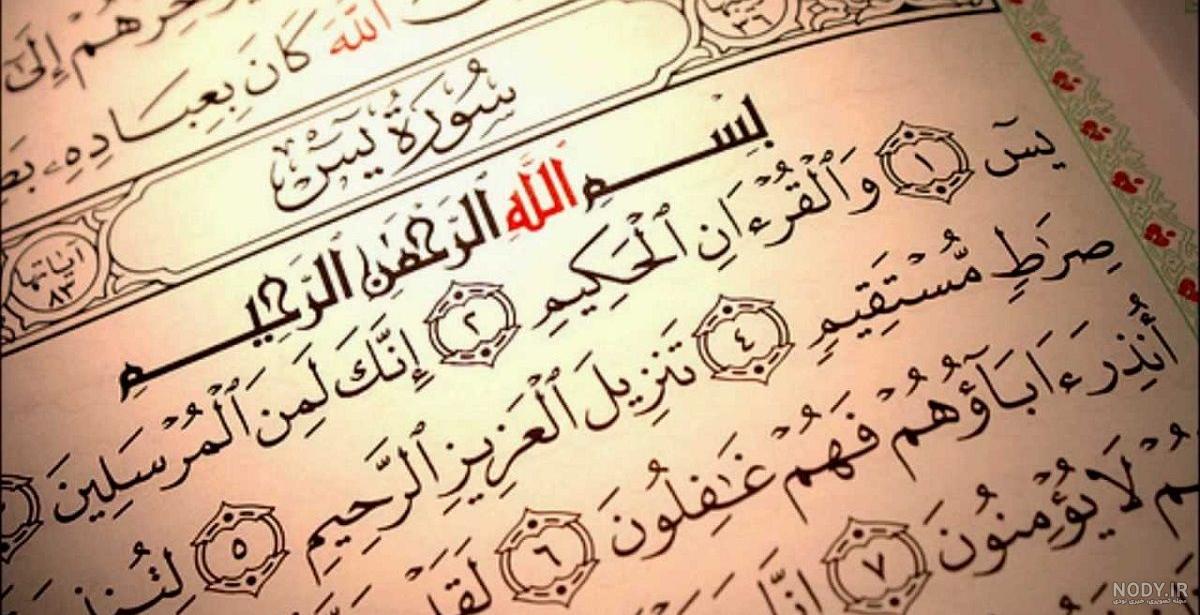 خِرِهِمْ إِلَىٰ
ٱللَّهَ كَانَ بِعِبَادِهِۦ بَص
٣٦
سُورَةُ يسٓ
ءَايَاتها ٨٣
بِسْمِ ٱللَّهِ ٱلرَّحْمَٰنِ ٱلرَّحِيمِ
يسٓ ١ وَٱلْقُرْءَانِ ٱلْحَكِيمِ ٢ إِنَّكَ لَمِنَ ٱلْمُرْسَلِينَ
صِرَٰطٍ مُّسْتَقِيمٍ ٤ تَنزِيلَ ٱلْعَزِيزِ ٱلرَّحِيمِ ٥ لِتُنذِ
أُنذِرَ ءَابَآؤُهُمْ فَهُمْ غَٰفِلُونَ ٦ لَقَ
هُمْ لَا يُؤْمِنُونَ ٧ إِنَّا
NODY.IR
مجله تصویری، خبری نودی